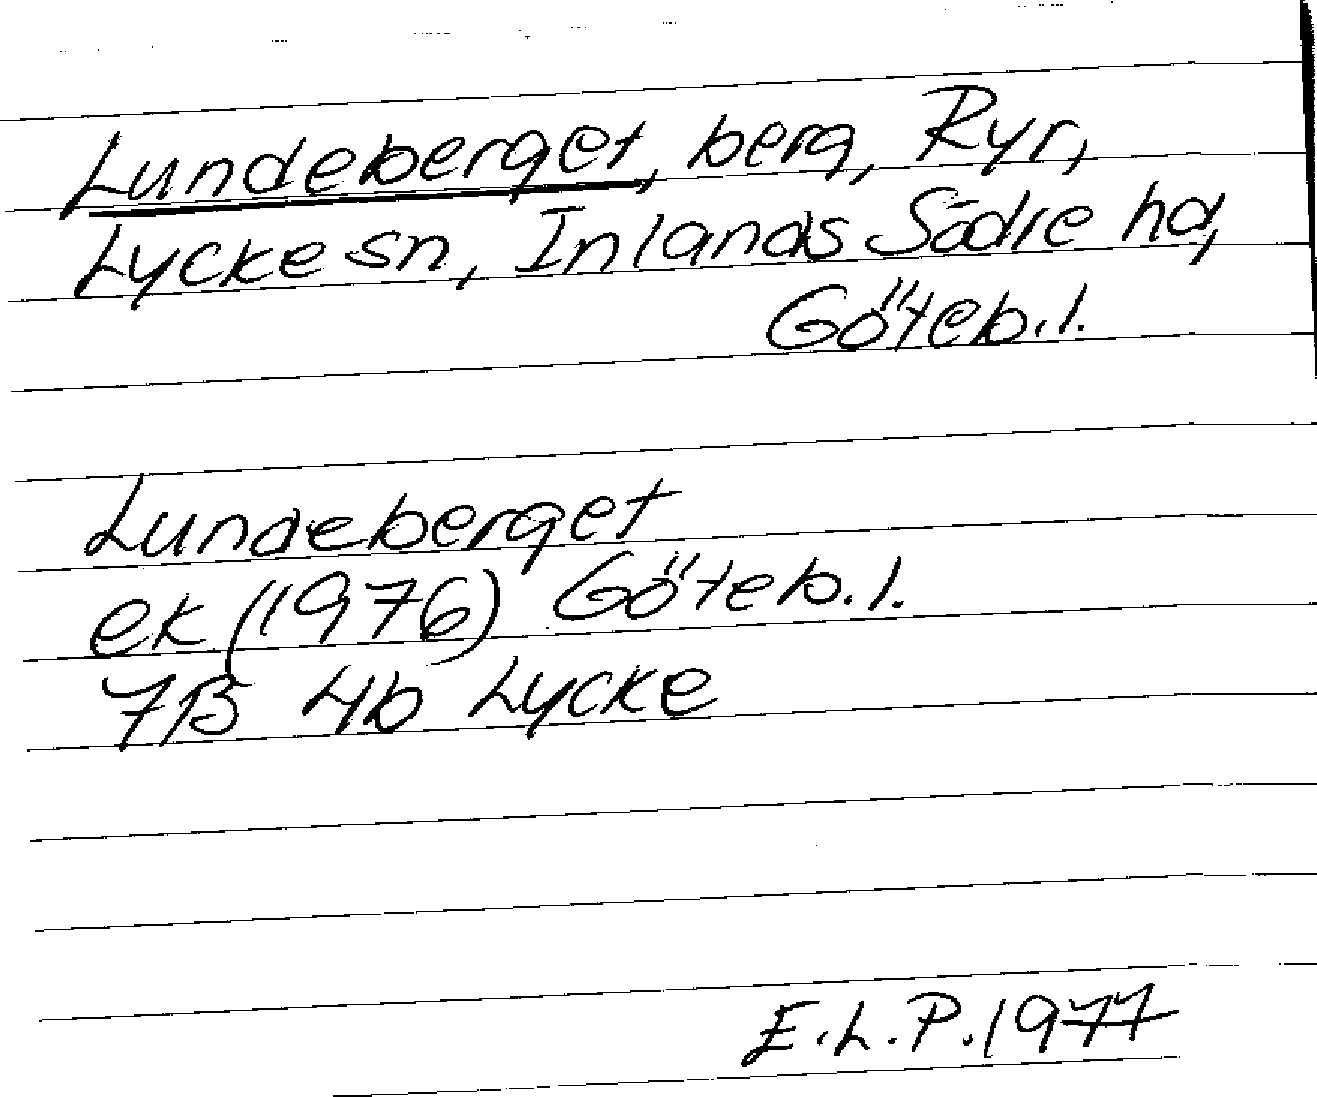 Lundeberget, berg, Ryr,
Lycke sn, Inlands Södre hd,
Göteb.l.
Lundeberget
ek (1976) Göteb.l.
7B 4b Lycke
E.L.P.1977